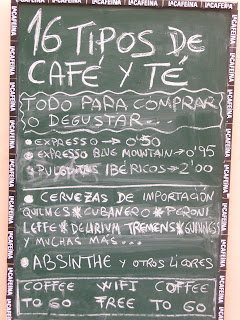 LACAFEINA LACAFEINA LACAFEINA LACAFEINA
16 TIPOS DE
CAFÉ Y TÉ
TODO PARA COMPRAR
O DEGUSTAR...
• EXPRESSO → 0'50
• EXPRESSO BLUE MOUNTAIN → 0'95
• PULGUITAS IBÉRICOS → 2'00
• CERVEZAS DE IMPORTACIÓN
QUILMES * CUBANERO * PERONI
LEFFE * DELIRIUM TREMENS *
Y MUCHAS MAS...
• ABSINTHE Y OTROS LICORES
COFFEE WIFI COFFEE
TO GO FREE TO GO